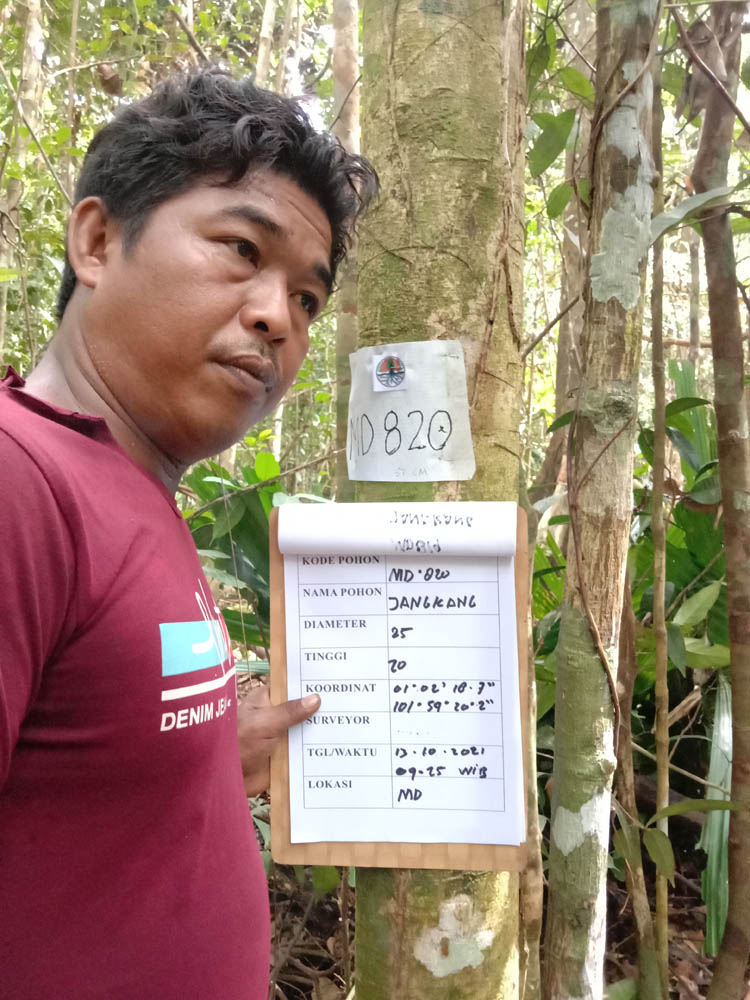 MD 820
57 CM
KODE POHON MD.820
NAMA POHON JANGKANG
DIAMETER 25
TINGGI 20
KOORDINAT 01°.02' 18.7"
101°.59° 20.2"
SURVEYOR
TGL/WAKTU 13.10.2021
09.25 WIB
LOKASI MD
DENIM